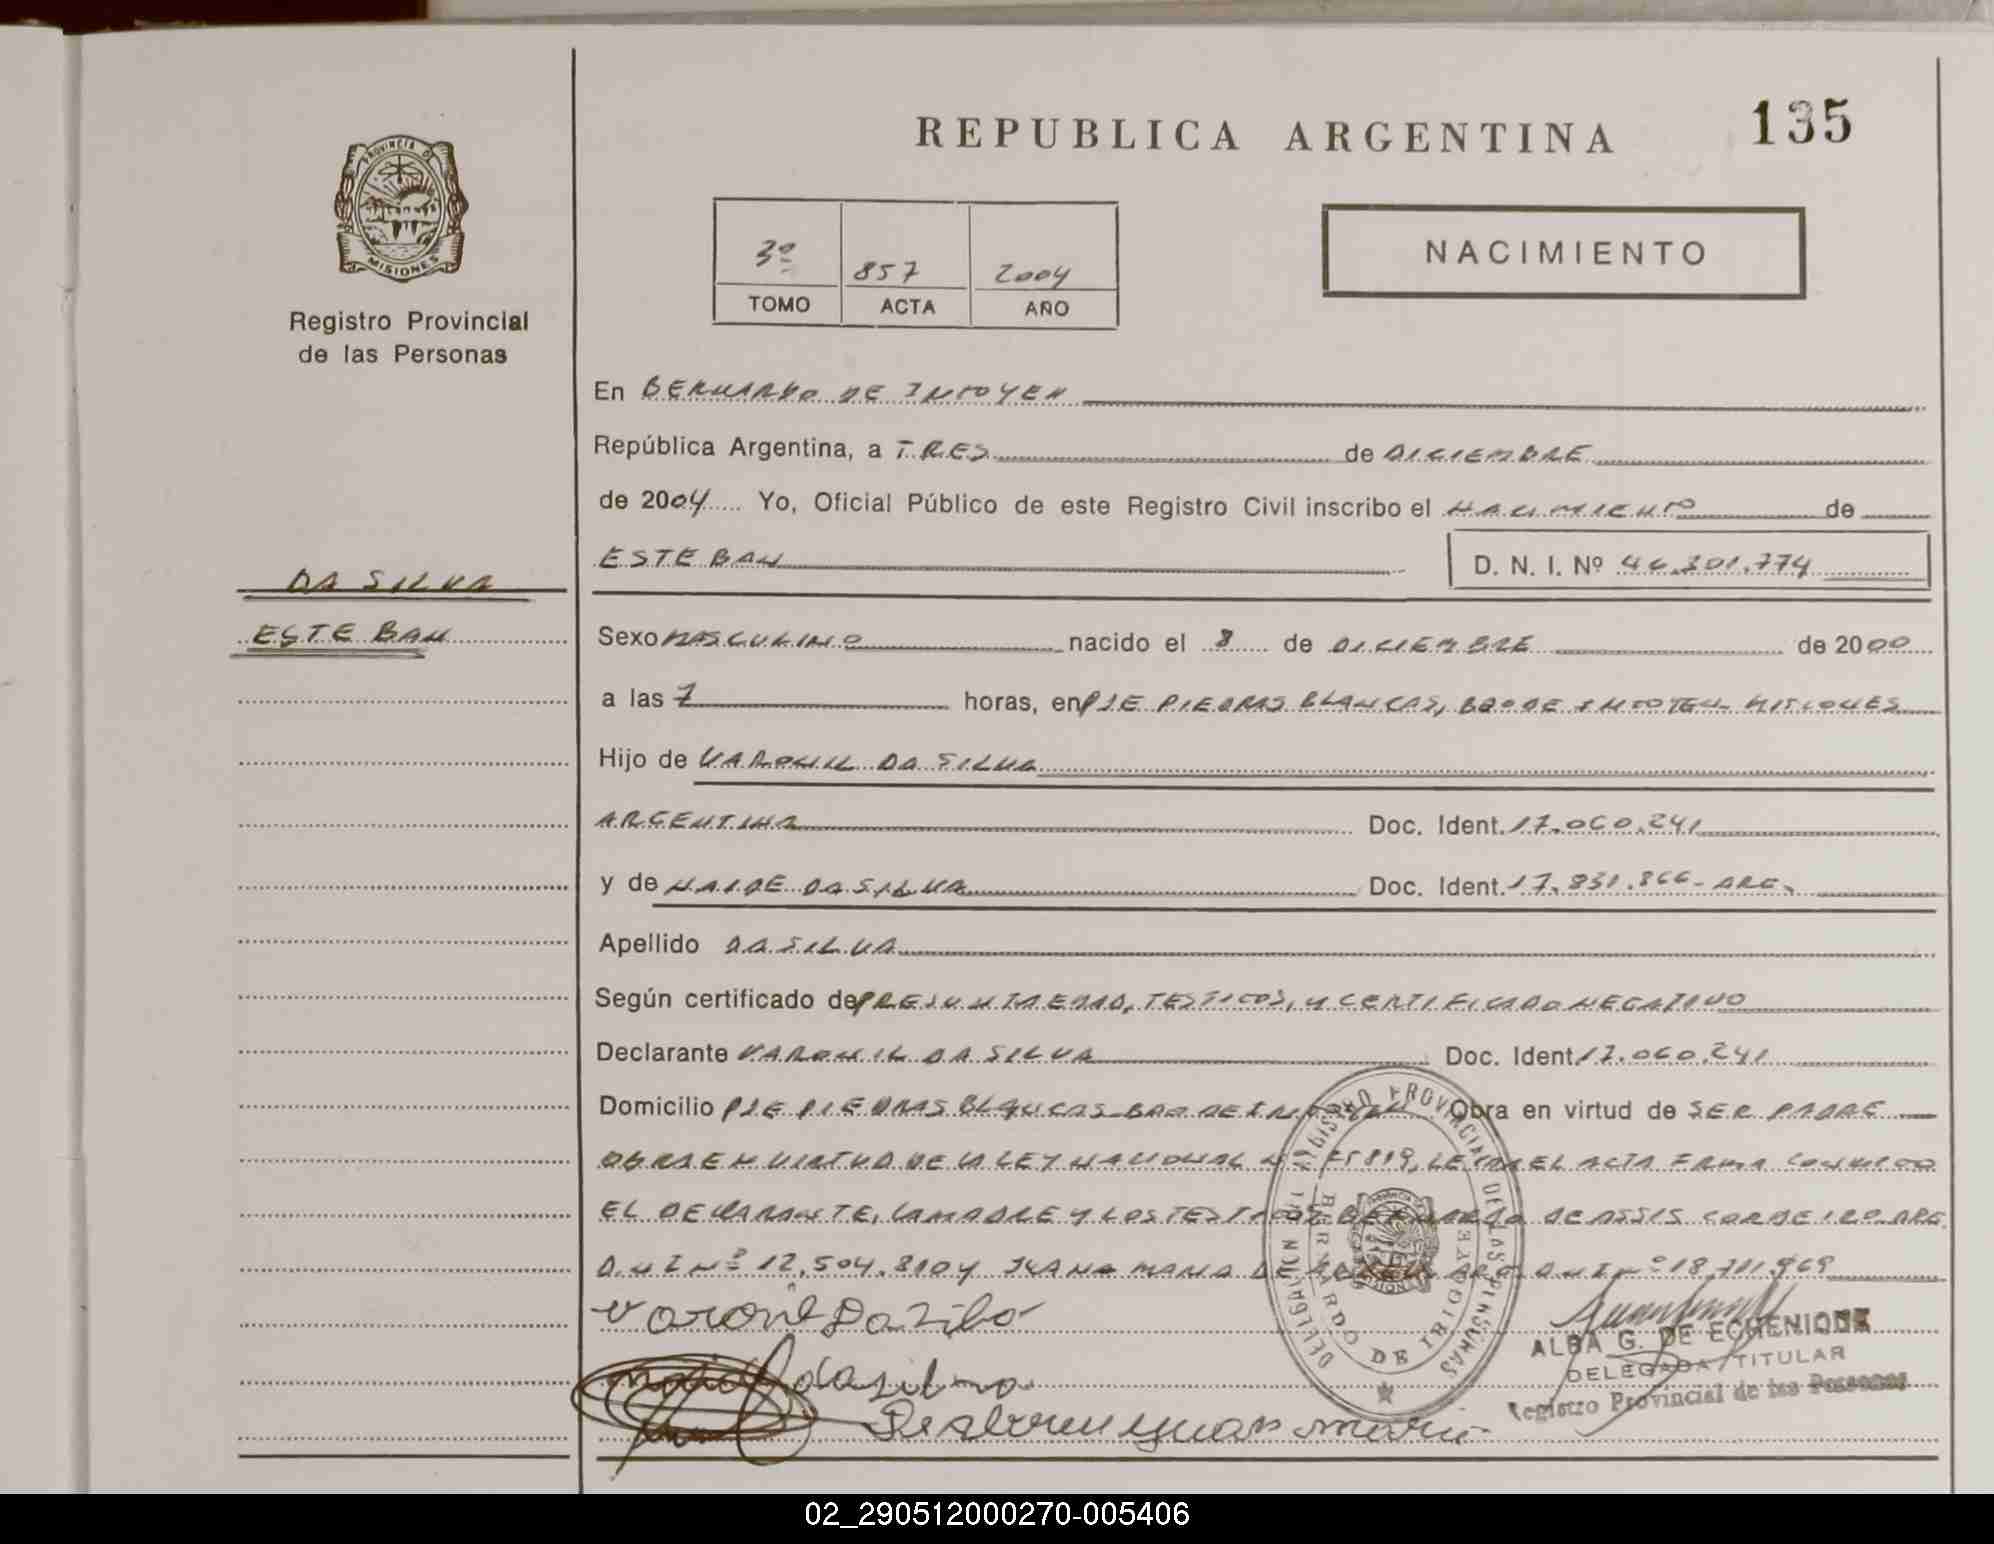 REPUBLICA ARGENTINA
135
PROVINCIA D
MISIONES
Registro Provincial
de las Personas
3º 857 2004
TOMO ACTA AÑO
NACIMIENTO
En BERNARDO DE IRIGOYEN
República Argentina, a TRES de DICIEMBRE
de 2004 Yo, Oficial Público de este Registro Civil inscribo el NACIMIENTO de
ESTEBAN D. N. I. Nº
DA SILVA
ESTEBAN
Sexo MASCULINO nacido el 8 de DICIEMBRE de 2000
a las 7 horas, en PJE PIEDRAS BLANCAS, BDO DE IRIGOYEN MISIONES
Hijo de VARONIL DA SILVA
ARGENTINA Doc. Ident. 17.060.241
y de NAIDE DA SILVA Doc. Ident. 17.831.866 - ARG.
Apellido DA SILVA
Según certificado de PRESUNTA EDAD, TESTIGOS, Y CERTIFICADO NEGATIVO
Declarante VARONIL DA SILVA Doc. Ident. 17.060.241
Domicilio PJE PIEDRAS BLANCAS BDO DE IRIGOYEN Obra en virtud de SER PADRE
OBRA EN VIRTUD DE LA LEY NACIONAL Nº 25819, LEIDA EL ACTA FIRMA CONMIGO
EL DECLARANTE, LA MADRE Y LOS TESTIGOS DE ASSIS CORDEIRO ARG.
D.N.I Nº 12.504.810 Y JUANA MARIA DE ARG. DNI Nº 18.711.969
Varonil Da Silva
da silva
maria
REGISTRO PROVINCIAL DE LAS PERSONAS
DELEGACION
BERNARDO DE IRIGOYEN
ALBA G. DE ECHENIQUE
DELEGADA TITULAR
Registro Provincial de las Personas
02_290512000270-005406